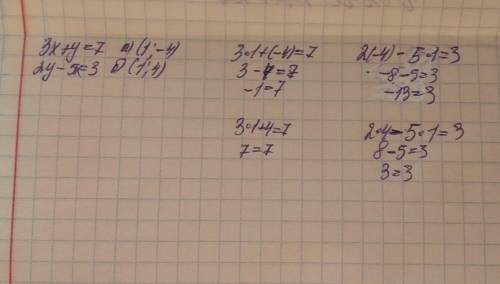 3x+y=7 а) (1; -4)
2y-5x=3 б) (1; 4)
3·1+(-4)=7
3-4=7
-1=7
2(-4)-5·1=3
-8-5=3
-13=3
3·1+4=7
7=7
2·4-5·1=3
8-5=3
3=3